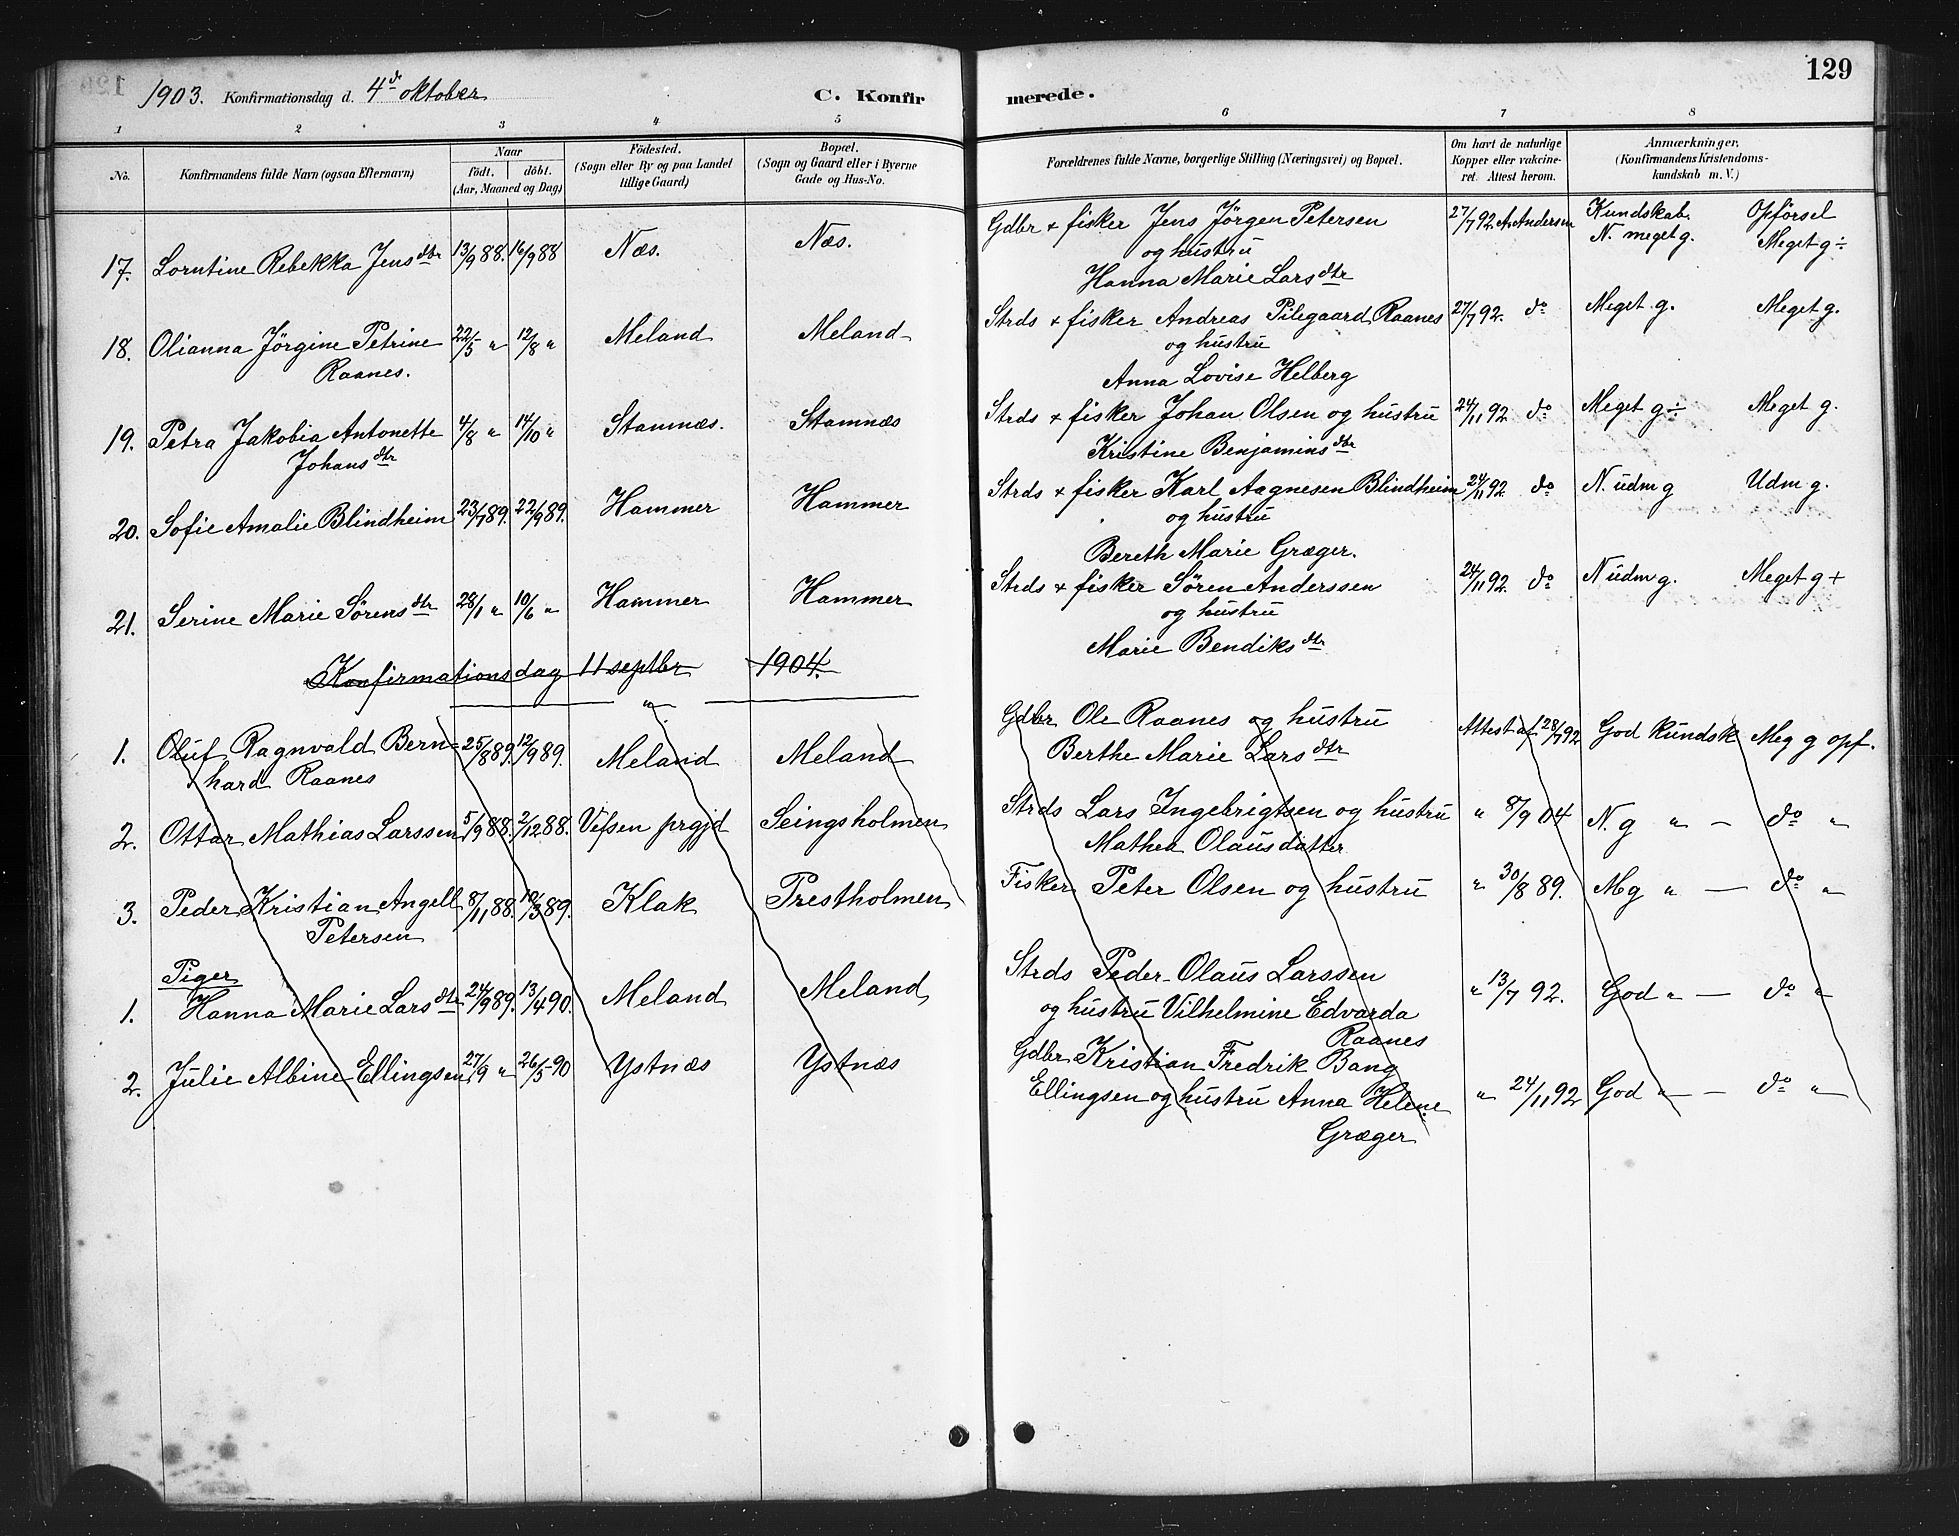 129
1903. Konfirmationsdag d. 4de oktober C. Konfirmerede.
1 2 3 4 5 6 7 8
No. Konfirmandens fulde Navn (ogsaa Efternavn) Naar födt. döbt. (Aar, Maaned og Dag) Födested. (Sogn eller By og paa Landet tillige Gaard) Bopæl. (Sogn og Gaard eller i Byerne Gade og Hus-No. Forældrenes fulde Navne, borgerlige Stilling (Næringsvei) og Bopæl. Om havt de naturlige Kopper eller vakcineret. Attest herom. Anmærkninger. (Konfirmandens Kristendomskundskab m. V.)
Kundskab. Opförsel
17. Lorntine Rebekka Jensdtr 13/9 88. 16/9 88 Næs. Næs. Gdbr + fisker Jens Jörgen Petersen 27/7 92 A. Andersen N. meget g. Meget g÷
og hustru
Hanna Marie Larsdtr
18. Olianna Jörgine Petrine 22/5 " 12/8 " Meland Meland Strds + fisker Andreas Pilegaard Raanes 27/7 92. do Meget g. Meget g.
Raanes. og hustru
Anna Lovise Helberg
19. Petra Jakobia Antonette 4/8 " 14/10 " Stamnæs. Stamnæs Strds + fisker Johan Olsen og hustru 24/11 92 do Meget g÷ Meget g.
Johansdtr Kristine Benjaminsdtr
20. Sofie Amalie Blindheim 23/7 89. 22/9 89. Hammer Hammer Strds + fisker Karl Aagnesen Blindheim 24/11 92 do N. udm g Udm g.
og hustru
Bereth Marie Græger.
21. Serine Marie Sörensdtr 28/1 " 10/6 " Hammer Hammer Strds + fisker Sören Anderssen 24/11 92. do N udm g. Meget g +
og hustru
Marie Bendiksdtr
Konfirmationsdag 11 septbr 1904.
"
1. Oluf Ragnvald Bern= 25/8 89. 12/9 89. Meland Meland Gdbr Ole Raanes og hustru Attest af 28/7 92 God kundsk Meg g opf.
hard Raanes Berthe Marie Larsdtr
2. Ottar Mathias Larssen 5/9 88. 2/12 88. Vefsen prgjd Seingsholmen Strds Lars Ingebrigtsen og hustru " 8/9 04 N. g " — do "
Mathea Olausdatter
3. Peder Kristian Angell 8/11 88. 10/3 89. Klak Prestholmen Fisker Peter Olsen og hustru " 30/8 89. Mg " — do "
Petersen
Piger
1. Hanna Marie Larsdtr 24/9 89. 13/4 90. Meland Meland Strds Peder Olaus Larssen " 13/7 92. God " — do "
og hustru Vilhelmine Edvarda
Raanes
2. Julie Albine Ellingsen 27/9 " 26/5 90 Ystnæs Ystnæs Gdbr Kristian Fredrik Bang
Ellingsen og hustru Anna Helene " 24/11 92 God " — do "
Græger